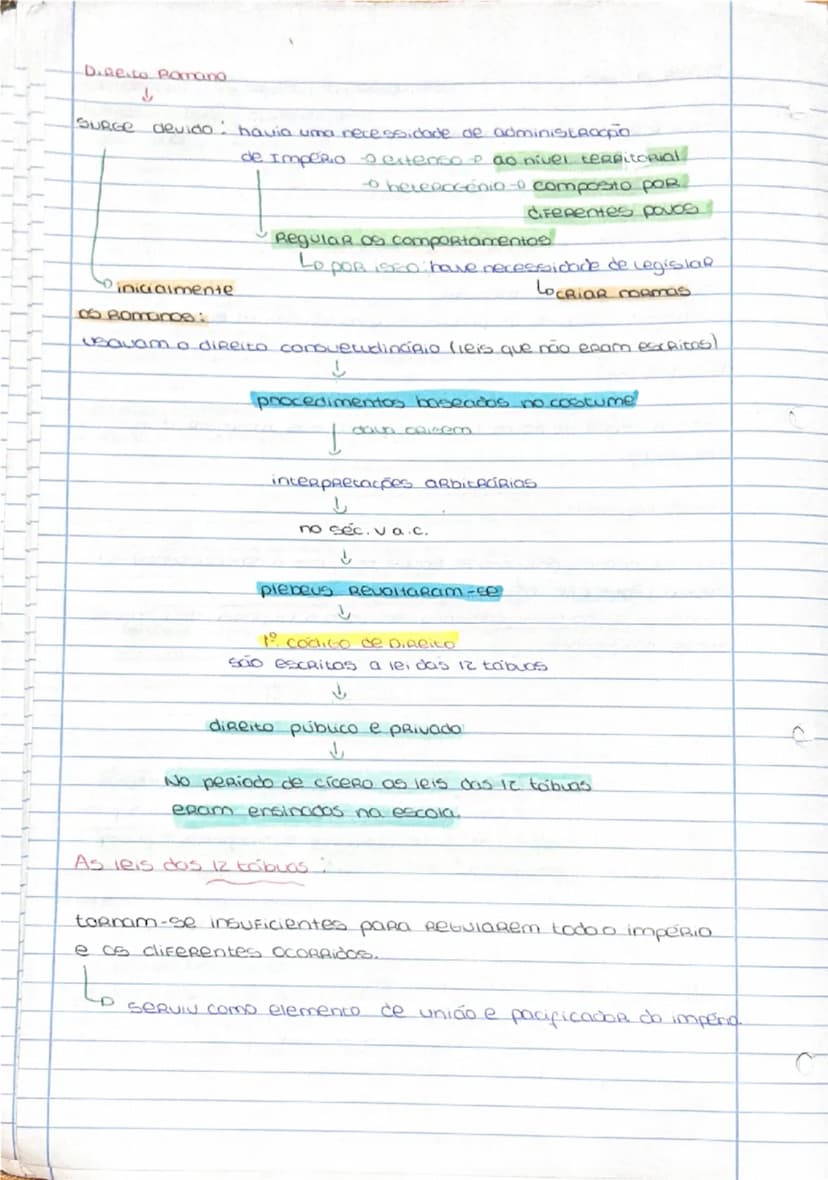 Direito Romano
↓
Surge devido: havia uma necessidade de administração
de Império → extenso → ao nível territorial
→ heterogénio → composto por
diferentes povos
Regular os comportamentos
↳ por isso: have necessidade de legislar
↳ criar normas
→ inicialmente
os Romanos:
usavam o direito consuetudinário (leis que não eram escritas)
↓
procedimentos baseados no costume
↓ dava origem
interpretações arbitrárias
↓
no séc. V a.c.
↓
plebeus revoltaram-se
↓
1º código de Direito
são escritas a lei das 12 tábuas
↓
direito público e privado
↓
No período de cícero as leis das 12 tábuas
eram ensinadas na escola.
As leis das 12 tábuas:
tornam-se insuficientes para regularem todo o império
e os diferentes ocorridos.
↳ serviu como elemento de união e pacificador do império.